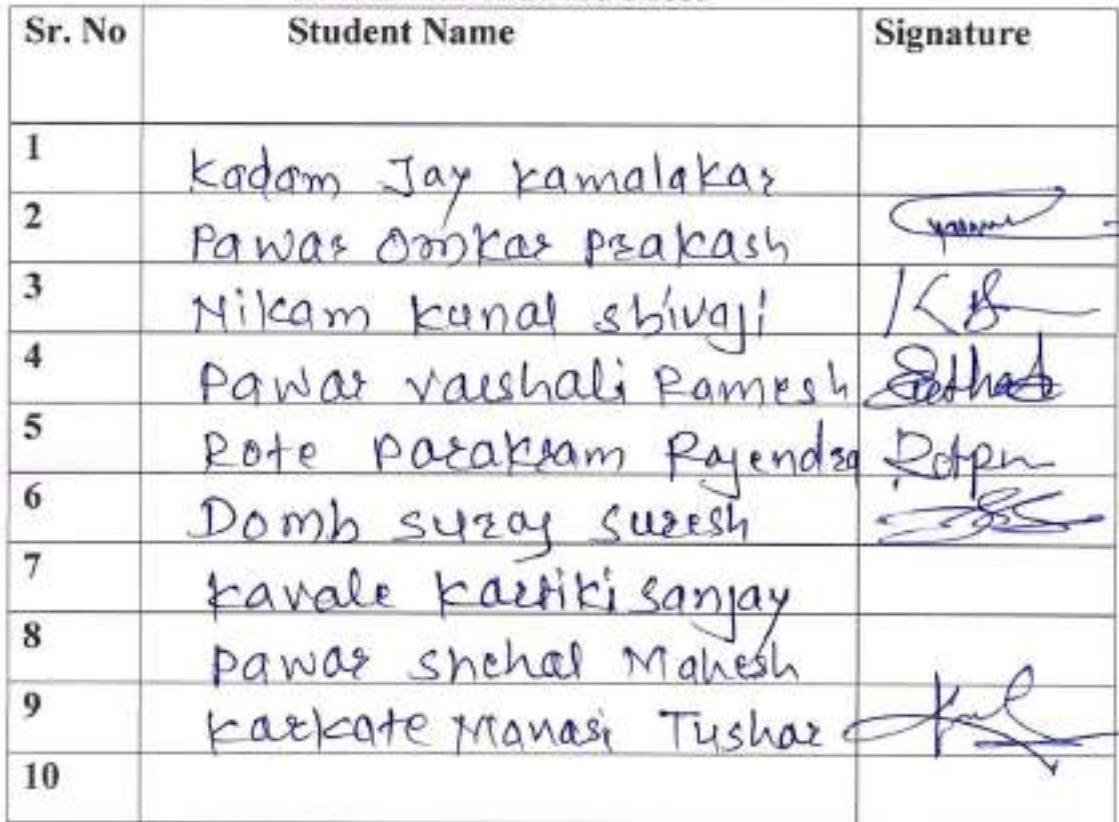 Sr. No Student Name Signature
1 Kadam Jay Kamalakar
2 Pawar Omkar Prakash
3 Nikam Kunal Shivaji
4 Pawar Varshali Ramesh
5 Rote Parakram Rajendra
6 Domb Suraj Suresh
7 Kavale Kartiki Sanjay
8 Pawar Snehal Mahesh
9 Karkate Manasi Tushar
10